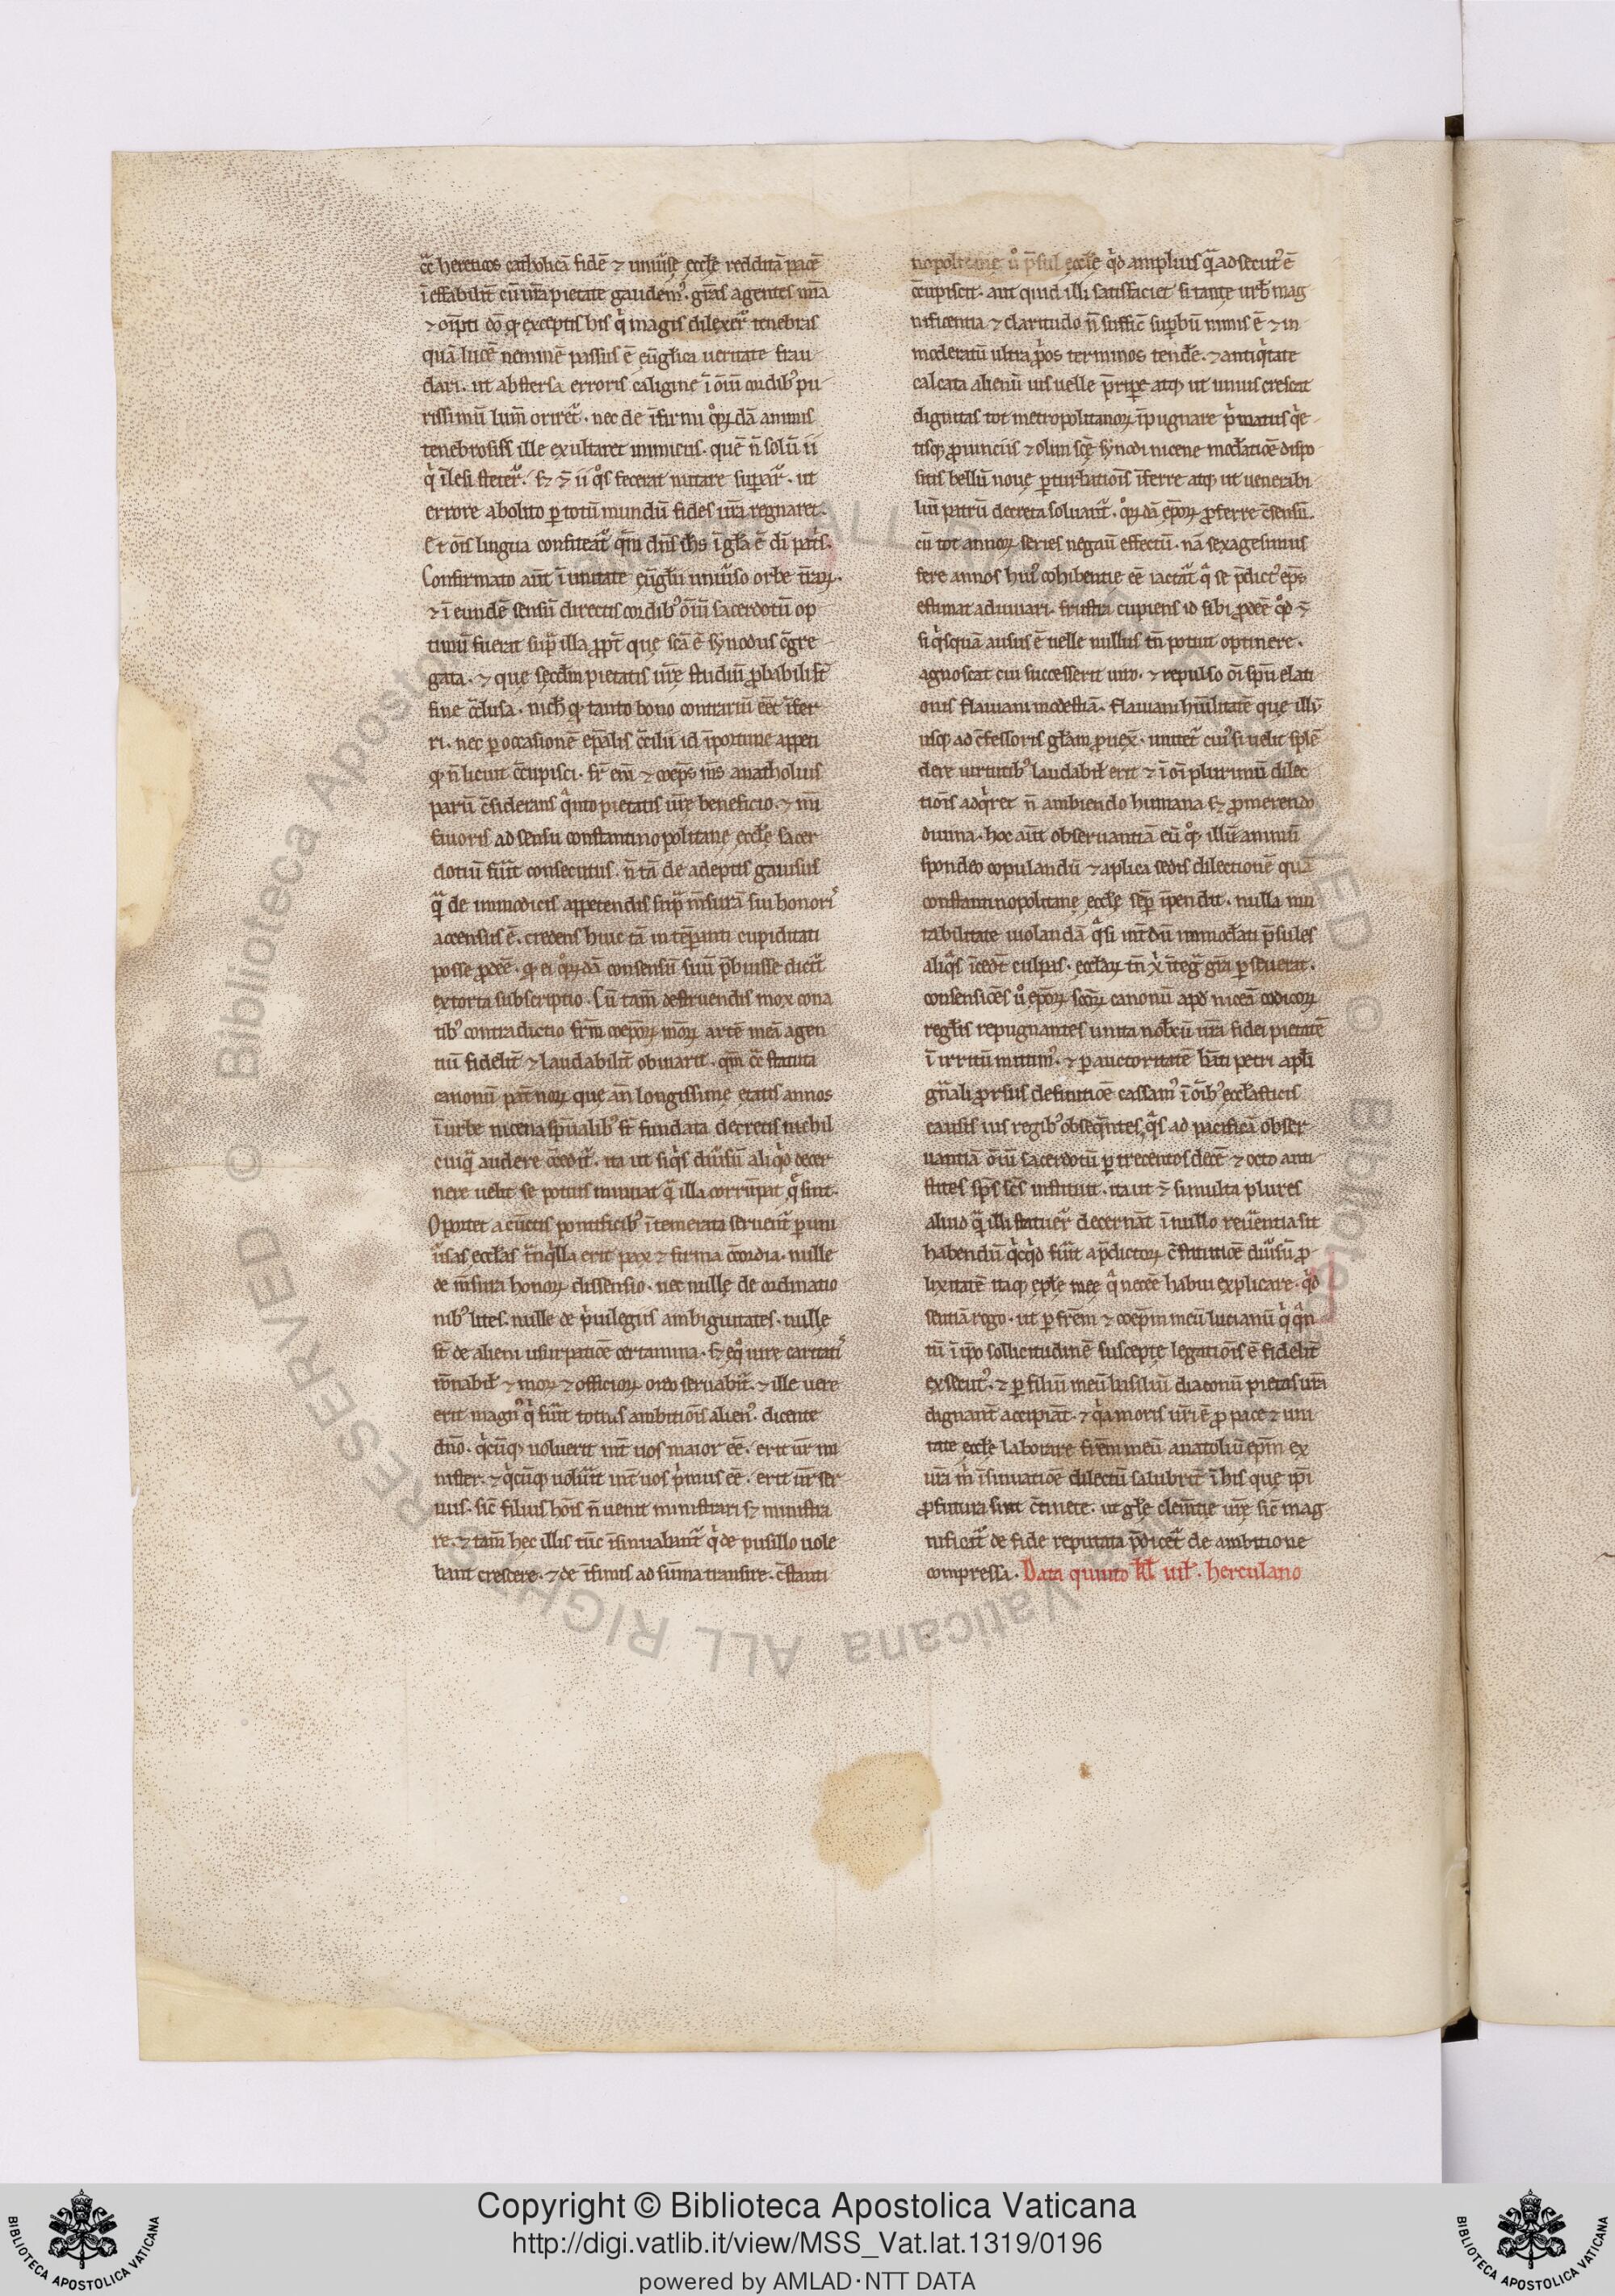 hereticos catholicā fidē ⁊ uniu̓sę ecctę redditā pacē
ī effabilit̄ cū ur̄a pietate gaudem᾽. gr̄as agentes unā
⁊ oīpti dō ꝙ exceptis his q̇ magis dilexer̄ tenebras
quā lucē neminē passus ē euḡlica ueritate frau
dari. ut abstersa erroris caligine ī oīū cordib᾽ pu
rissimū lum̄ oriret᷑. nec de īfirmi q̊ꝝdā animis
tenebrosiss̄ ille exultaret inimicus. quē n̄ solū ii
q̇ īlesi steter̄. sꝫ ⁊ ii q̊s fecerat nutare supar̄. ut
errore abolito ꝑ totū mundū fides ur̄a regnaret.
Et oīs lingua confiteat᷑ qm̄ dn̄s ih̄s ī gl̄a ē dī pat̄s.
Confirmato aūt ī unitate euḡlii uniu̓so orbe tr̄aꝝ.
⁊ ī eundē sensū directis cordib᾽ oīū sacerdotū op
timū fuerat suꝑ illa ꝓpt̄ que sc̄a ē synodus c̄gre
gata. ⁊ que secd̄m pietatis ur̄ę studiū ꝓbabili st̄
fine c̄clusa. nich̄ ꝙ tanto bono contrariū eēt īfer
ri. nec ꝑ occasionē ep̄alis c̄cilii id īportune appeti
ꝙ n̄ licuit c̄cupisci. fr̄ eni᷑ ⁊ coep̄s m̄s anatholius
parū c̄siderans q̄nto pietatis ur̄ę beneficio. ⁊ m̄i
fauoris ad sensu constantinopolitanę ecctę sacer
dotiū fūit consecutus. n̄ tā de adeptis gauisus
q̄ de inmodicis appetendis suꝑ m̄surā sui honori᾽
accensus ē. credens huic tā intēꝑanti cupiditati
posse ꝓdeē. ꝙ ei q̊ꝝdā consensū suū p̄buisse dicit᷑
extorta subscriptio. Cū tam̄ destruendis mox cona
tib᾽ contradictio fr̄m coep̄oꝝ m̄oꝝ artē meā agen
tiū fidelit̄ ⁊ laudabilit̄ obuiarit. qm̄ c̄ statuta
canonū pat̄noꝝ que an̄ longissime etatis annos
ī urbe nicena spūalib᾽ st̄ fundata decretis nichil
cuiq̄ audere c̄cedit᷑. ita ut siq̇s diu̓sū aliq̇d decer
nere uelit. se potius minuat q̄ illa corrūpat q̄ sint.
Oportet a cūctis pontificib᾽ ītemerata seruent᷑ ꝑ uni
u̓sas ecctas t̄nq̇lla erit pax ⁊ firma c̄cordia. nulle
de m̄sura honoꝝ dissensio. nec nullę de ordinatio
nib᾽ lites. nulle de ṗuilegiis ambiguitates. nullę
st̄ de alieni usurpatiōe certamina. sꝫ eq̊ iure caritati᾽
rōnabil̄ ⁊ moꝝ ⁊ officioꝝ ordo seruabit᷑. ⁊ ille uere
erit magn᾽ q̇ fūit totius ambitiōis alien᾽. dicente
dn̄o. q̇cūꝙ uoluerit int̄ uos maior eē. erit ur̄ mi
nister. ⁊ q̇cūꝙ uolūit int̄ uos ṗmus eē. erit ur̄ ser
uus. sic̄ filius hoīs n̄ uenit ministrari sꝫ ministra
re. ⁊ tam̄ hec illis tūc īsinuabant᷑ q̇ de pusillo uole
bant crescere. ⁊ de īfimis ad sūma transire. c̄stanti
nopolitane u̓ p̄sul ecctę q̇d amplius q̄ adsecut᾽ ē
c̄cupiscit. aut quid illi satisfaciet si tantę urb̄ mag
nificentia ⁊ claritudo n̄ suffic̄ suꝑbū nimis ē ⁊ in
moderatū ultra ꝓp̄os terminos tendē. ⁊ antiq̇tate
calcata alienū uis uelle p̄ripe atꝙ ut unius crescat
dignitas tot metropolitanoꝝ īpugnare ṗmatus q̇e
tisꝙ ꝓuinciis ⁊ olim sc̄ę synodi nicene mod̄atiōe dispo
sitis bellū nouę ꝑturbatiōis īferre atꝙ ut uenerabi
liū patrū decreta soluant᷑. q̊ꝝdā ep̄oꝝ ꝓferre c̄sensū.
cū tot annoꝝ series negau̓ effectū. nā sexagesimus
fere annos hui᾽ cohibentie eē iactat᷑ q̄ se p̄dict᾽ ep̄s
estimat adiuuari. frustra cupiens id sibi ꝓdeē q̊d ⁊
si q̇squā ausus ē uelle nullus tn̄ potuit optinere.
agnoscat cui successerit uiro. ⁊ repulso oī spū elati
onis flauiani modestiā. flauiani humilitatē que illū
usꝙ ad c̄fessoris gl̄am ꝓuex̄. unitet᷑ cui᾽ si uelit splē
dere uirtutib᾽ laudabil̄ erit ⁊ ī oī plurimū dilec
tiōis adq̇ret n̄ ambiendo humana sꝫ ꝓmerendo
diuina. hoc aūt obseruantiā eū q̊ꝙ illū animū
spondeo copulandū ⁊ aplica sedis dilectionē quā
constantinopolitanę ecctę seꝑ īpendit. nulla mu
tabilitate uiolandā q̇si int̄dū inmod̄ati p̄sules
aliq̇s īcedt̄ culpas. ecctaꝝ tn̄ x̄ īteg̅ gr̄a ꝑseuerat.
consensiōes u̓ ep̄oꝝ sc̄oꝝ canonū apd̄ niceā codicoꝝ
regl̄is repugnantes unita nob̄cū ur̄a fidei pietatē
ī irritū mittim᾽. ⁊ ꝑ auctoritatē bāti petri apl̄i
gn̄ali ꝓrsus definitiōe cassam᾽ ī oīb᾽ ecclasticis
causis ius regib᾽ obseq̄ntes, q̇s ad pacificā obser
uantiā oīū sacerdotū ꝑ trecentos decē ⁊ octo anti
stites sp̄s sc̄s instituit. ita ut ⁊ si multa plures
aliud q̄ illi statuer̄ decernāt ī nullo reu̓entia sit
habendū q̇cq̇d fūit a p̄dictoꝝ c̄stitutiōe diu̓sū ꝓ
lixitatē itaꝙ epl̄e męę q̄ neceē habui explicare. q̇d
sentiā rogo. ut ꝑ fr̄em ⁊ coep̄m meū lucianū q̇ q̄n
tū ī ip̄o sollicitudinē suscepte legatiōis ē fidelit̄
exsecut᾽. ⁊ ꝑ filiū meū basiliū diaconū pietas ur̄a
dignant̄ accipiāt. ⁊ q̇a moris ur̄i ē ꝓ pace ⁊ uni
tate ecctę laborare fr̄em meū anatoliū ep̄m ex
ur̄a m̄ īsinuatiōe dilectū salubrit̄ ī his que ip̄i
ꝓfutura sint c̄tinete. ut gl̄e clem̄tię ur̄ę sic̄ mag
nificat᷑ de fide reputata p̄dicet᷑ de ambitione
compressa. Data quinto kl̄ iul̄. herculano
Copyright © Biblioteca Apostolica Vaticana
http://digi.vatlib.it/view/MSS_Vat.lat.1319/0196
powered by AMLAD·NTT DATA
BIBLIOTECA APOSTOLICA VATICANA
BIBLIOTECA APOSTOLICA VATICANA
© Biblioteca Apostolica Vaticana ALL RIGHTS RESERVED © Biblioteca Apostolica Vaticana ALL RIGHTS RESERVED